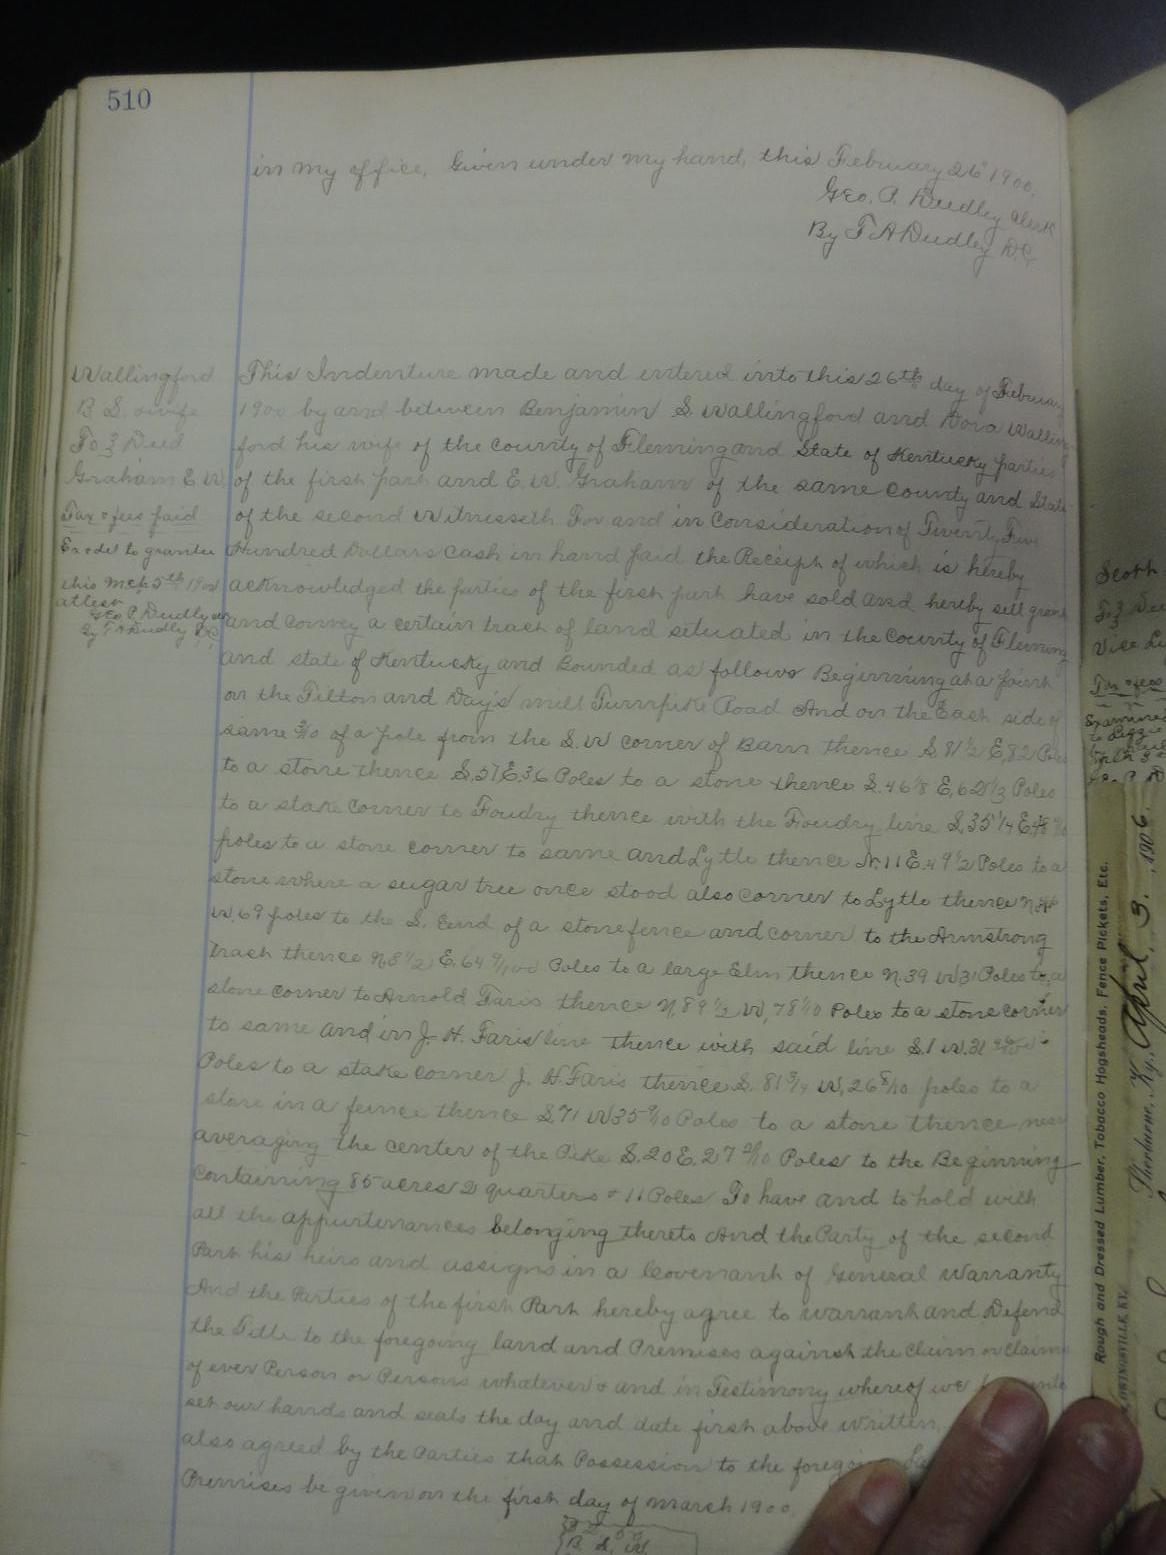 510
in my office, Given under my hand, this February 26th 1900.
Geo. P. Dudley Clerk
By T A Dudley D.C.
Wallingford
B. S. & wife
To } Deed
Graham E. W.
Tax & fees paid
Ex & del to grantee
this Mch 5th 1900
attest
Geo P. Dudley
By T A Dudley D.C.
This Indenture made and entered into this 26th day of February
1900 by and between Benjamin S. Wallingford and Dora Walling
ford his wife of the county of Fleming and State of Kentucky parties
of the first part and E. W. Graham of the same county and State
of the second Witnesseth For and in consideration of Twenty Five
Hundred Dollars cash in hand paid the Receipt of which is hereby
acknowledged the parties of the first part have sold and hereby sell grant
and convey a certain tract of land situated in the county of Fleming
and state of Kentucky and Bounded as follows Beginning at a point
on the Tilton and Day's mill Turnpike Road And on the East side of
same 3/10 of a pole from the S. W corner of Barn thence S 81 1/2 E, 82 Poles
to a stone thence S. 57 E. 36 Poles to a stone thence S. 46 1/8 E, Poles
to a stake corner to Foudry thence with the Foudry line S, 35 1/4 E
poles to a stone corner to same and Lytle thence N. 11 E. 49 1/2 Poles to a
stone where a sugar tree once stood also corner to Lytle thence
W, 69 poles to the S. End of a stone fence and corner to the Armstrong
tract thence N 8 1/2 E. 64 Poles to a large Elm thence N. 39 W 31 Poles to a
stone corner to Arnold Faris thence N, 89 1/2 W, 78 Poles to a stone corner
to same and in J. H. Faris line thence with said line S. 1 W. 31
Poles to a stake corner J. H. Faris thence S. 81 3/4 W, 26 8/10 poles to a
stone in a fence thence S. 71 W 35 Poles to a stone thence near
averaging the center of the Pike S. 20 E. 27 Poles to the Beginning
Containing 85 acres 2 quarters & 11 Poles To have and to hold with
all the appurtenances belonging thereto And the Party of the second
Part his heirs and assigns in a Covenant of General Warranty
And the Parties of the first Part hereby agree to warrant and Defend
the Title to the foregoing land and Premises against the claim or claims
of ever Person or Persons whatever & and in Testimony whereof we
set our hands and seals the day and date first above written,
also agreed by the Parties that Possession to the
Premises be given on the first day of March 1900.
B. S. W.
Scott
To } Deed
Vice
Tax & fees
Examined
Rough and Dressed Lumber, Tobacco Hogsheads, Fence Pickets, Etc.
Sherburne, Ky, April 3, 1906.